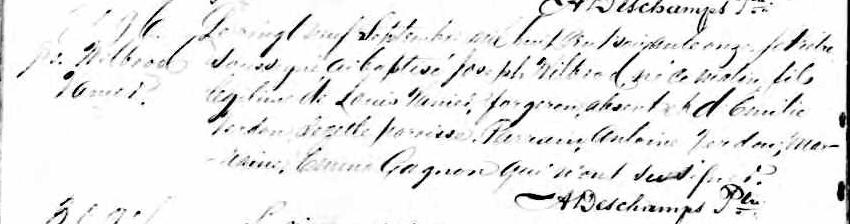 A Deschamps Ptre
Le vingt neuf Septembre mil huit cent soixante onze, je Ptre
Jos. Wilbrod soussigné ai baptisé Joseph Wilbrod, né ce matin, fils
Vanier. légitime de Louis Vanier, forgeron, absent & d'Emilie
Verdon, de cette paroisse. Parrain, Antoine Verdon, Mar-
raine, Emma Gagnon qui n'ont su signer.
A Deschamps Ptre